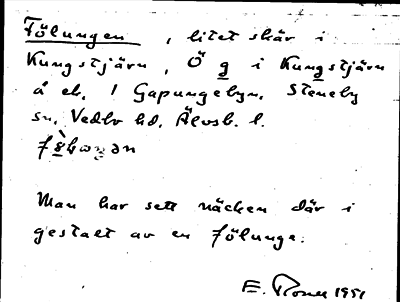 Fölungen, litet skär i
Kungstjärn, Ö g i Kungstjärn
å ek. 1 Gapungebyn, Steneby
sn, Vedbo hd, Älvsb. l.
Man har sett näcken där i
gestalt av en fölunge.
E. 1951